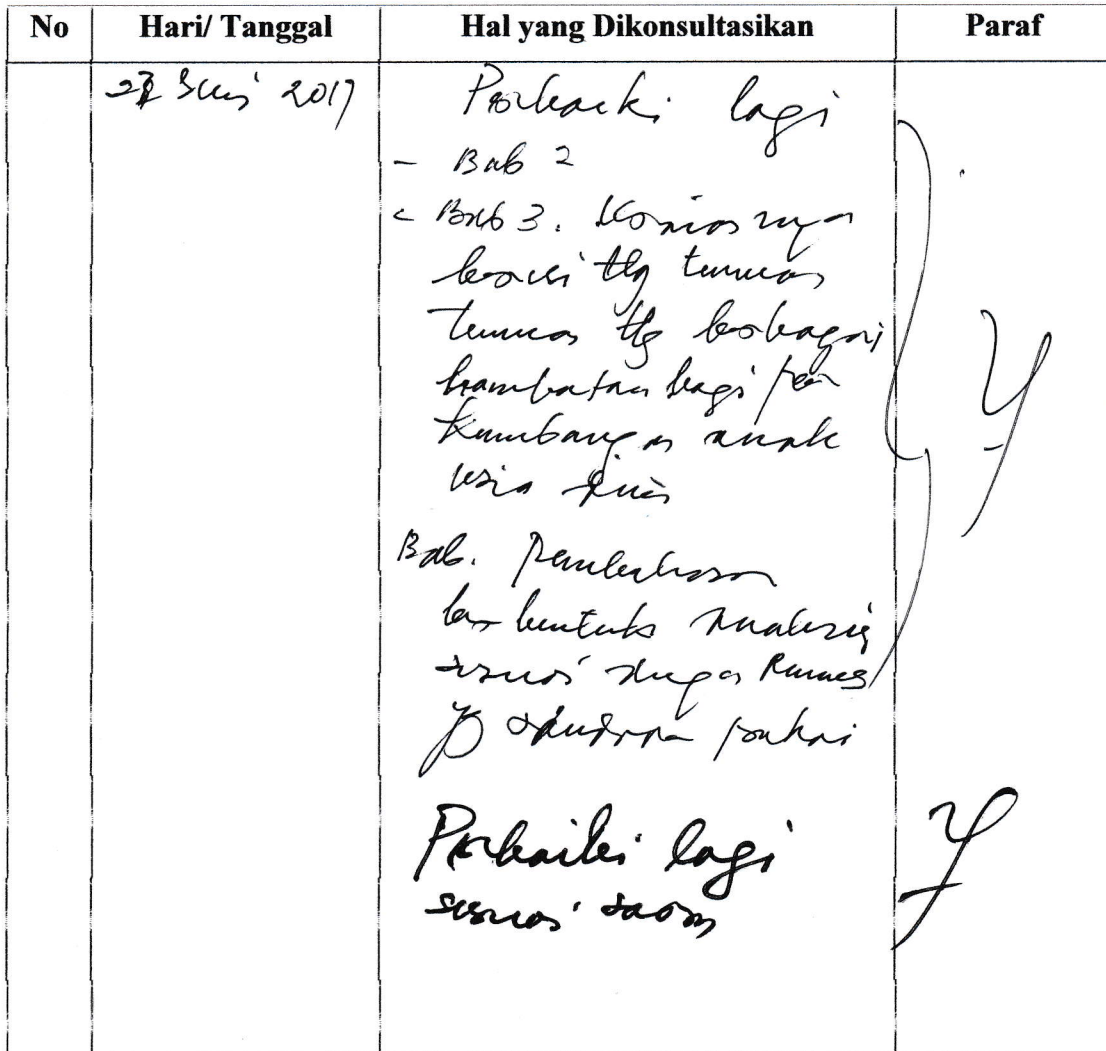 No Hari/ Tanggal Hal yang Dikonsultasikan Paraf
Juni 2017 Perbaiki lagi
- Bab 2
- Bab 3.
berisi ttg
ttg berbagai
hambatan bagi per
kembangan anak
usia dini
Bab. Pembahasan
berbentuk analisis
sesuai dengan Rumus
yg saudara pakai
Perbaiki lagi
sesuai saran